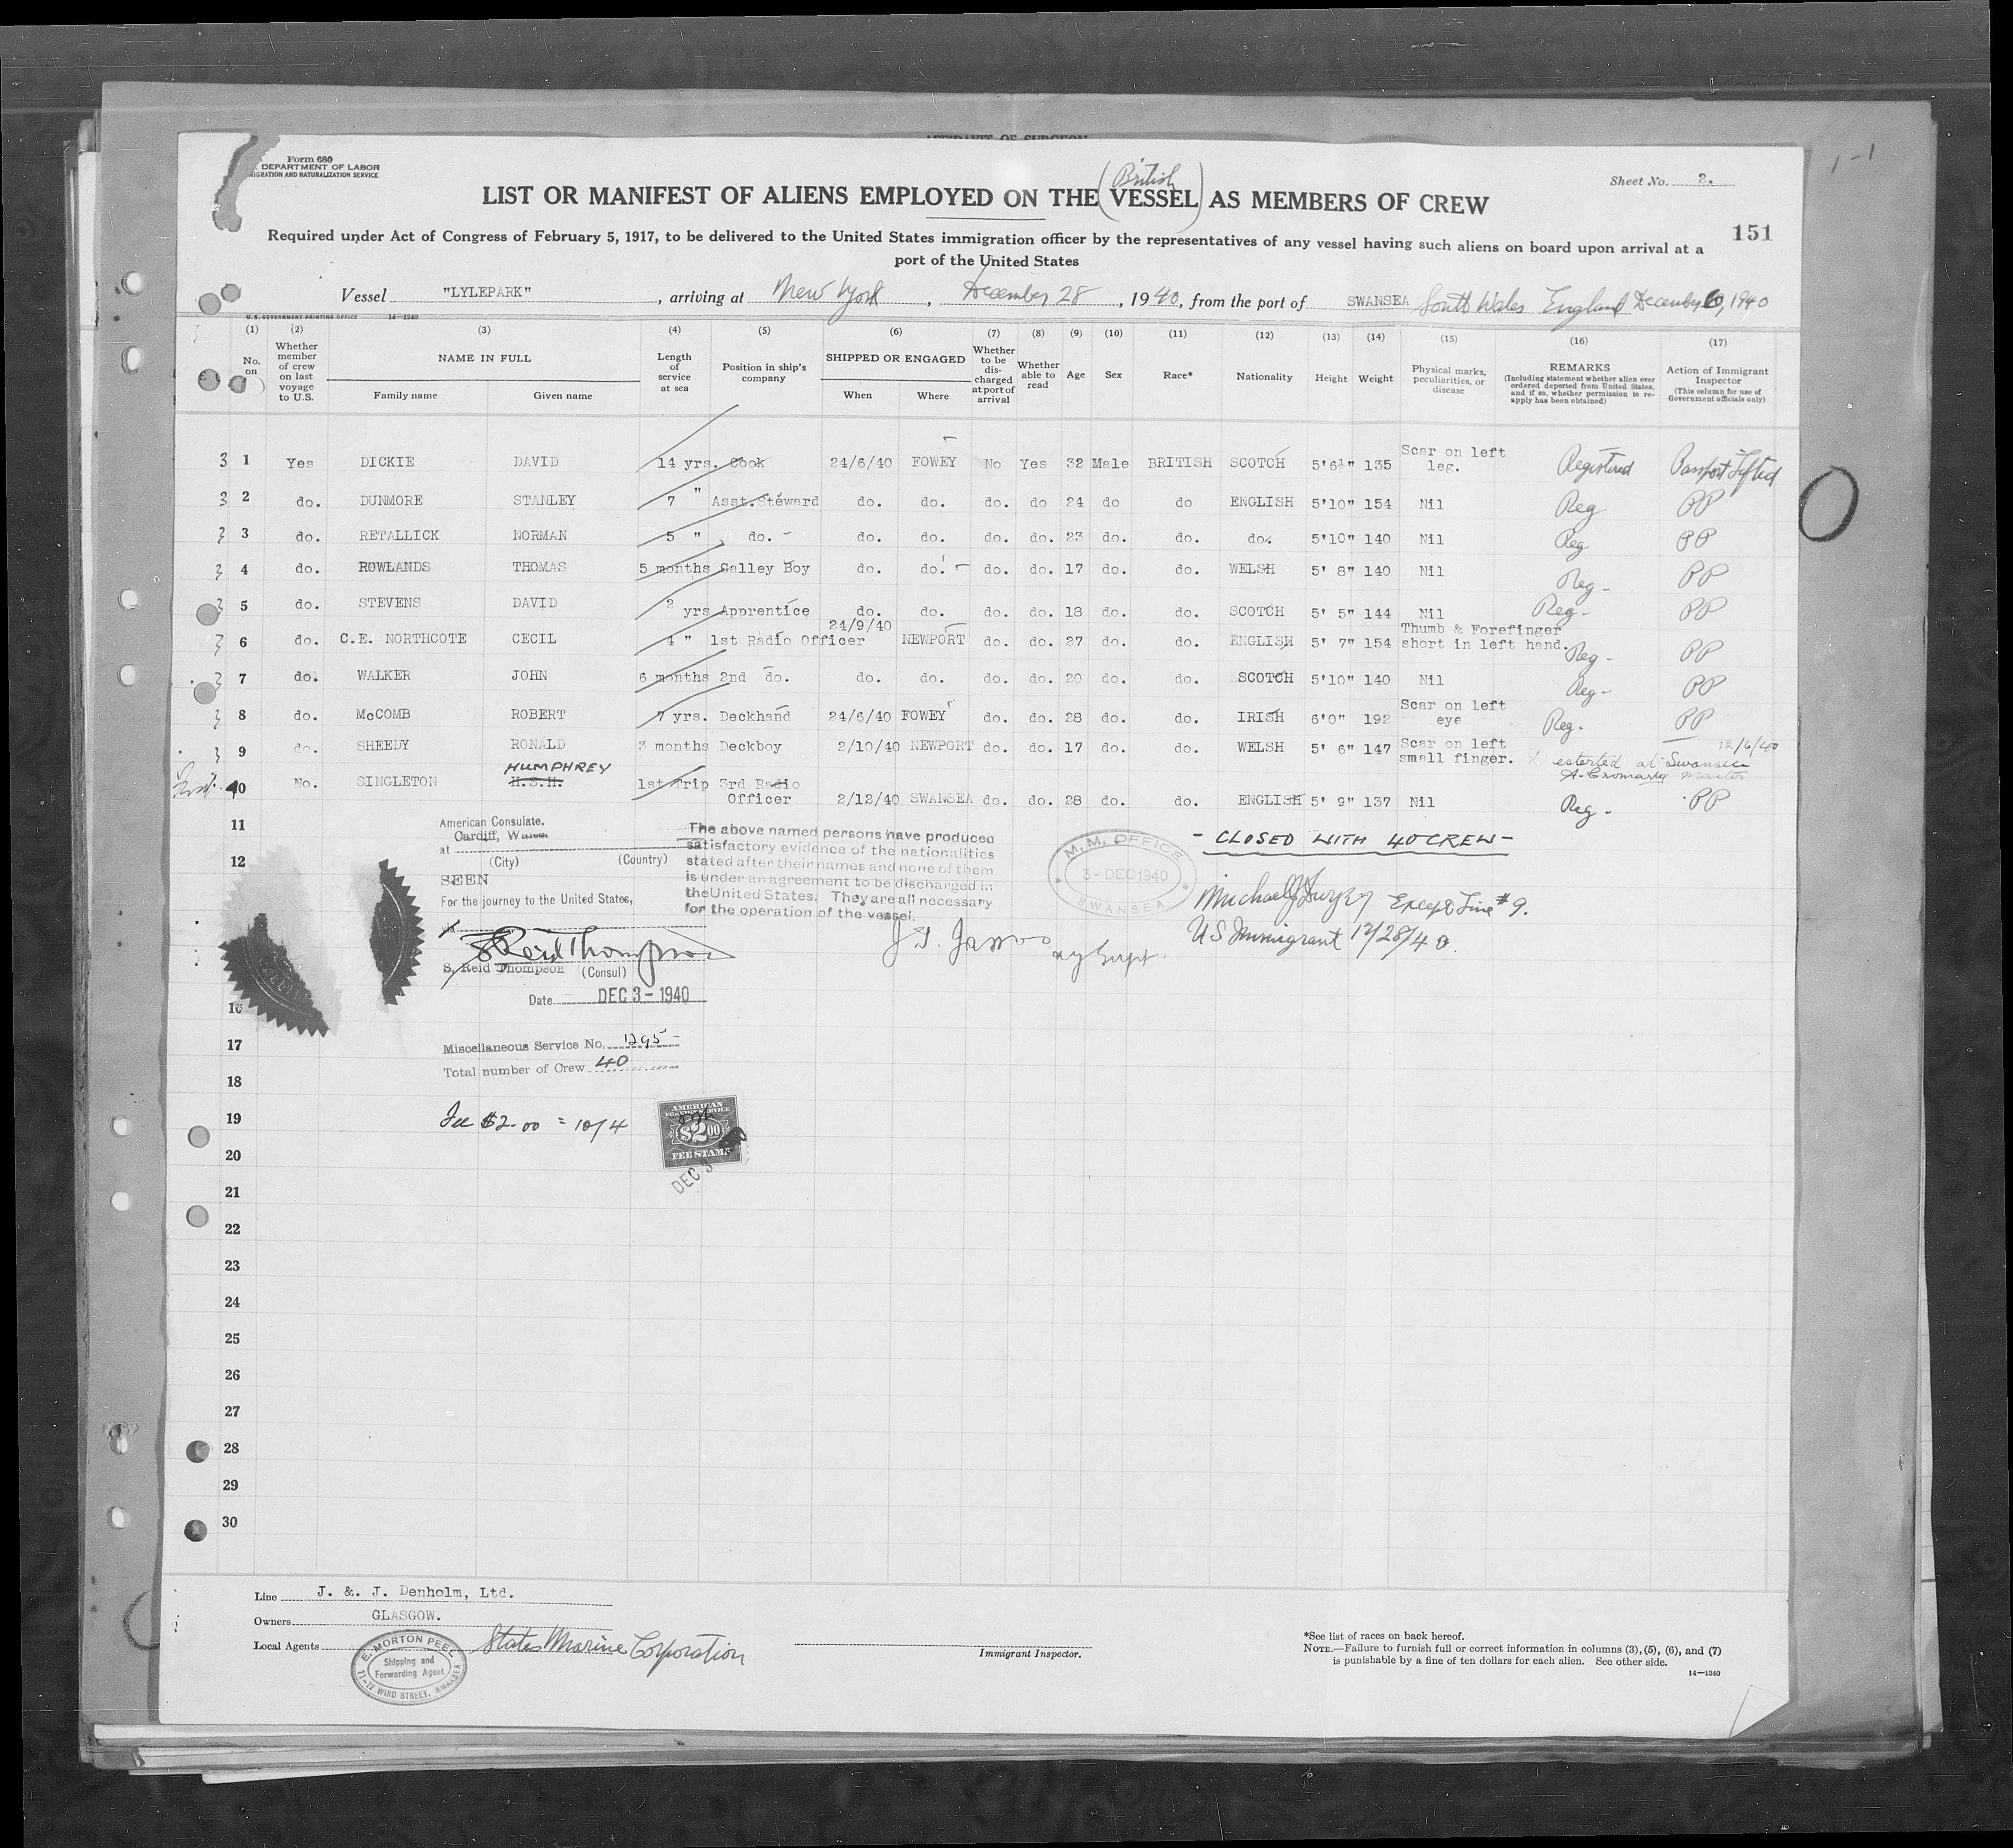 AFFIDAVIT OF SURGEON
1-1
Form 680
DEPARTMENT OF LABOR
IGRATION AND NATURALIZATION SERVICE
Sheet No. 2.
(British)
LIST OR MANIFEST OF ALIENS EMPLOYED ON THE VESSEL AS MEMBERS OF CREW
151
Required under Act of Congress of February 5, 1917, to be delivered to the United States immigration officer by the representatives of any vessel having such aliens on board upon arrival at a
port of the United States
Vessel "LYLEPARK", arriving at New York, December 28, 1940, from the port of SWANSEA South Wales England December 6, 1940
U.S. GOVERNMENT PRINTING OFFICE 14-1240
(1) (2) (3) (4) (5) (6) (7) (8) (9) (10) (11) (12) (13) (14) (15) (16) (17)
No. on
Whether member of crew on last voyage to U.S.
NAME IN FULL
Family name Given name
Length of service at sea
Position in ship's company
SHIPPED OR ENGAGED
When Where
Whether to be discharged at port of arrival
Whether able to read
Age Sex Race* Nationality Height Weight
Physical marks, peculiarities, or disease
REMARKS
(Including statement whether alien ever ordered deported from United States, and if so, whether permission to reapply has been obtained)
Action of Immigrant Inspector
(This column for use of Government officials only)
3 1 Yes DICKIE DAVID 14 yrs. Cook 24/6/40 FOWEY No Yes 32 Male BRITISH SCOTCH 5'6½" 135 Scar on left leg. Registered Passport Lifted
3 2 do. DUNMORE STANLEY 7 " Asst. Steward do. do. do. do 24 do do ENGLISH 5'10" 154 Nil Reg PP
3 3 do. RETALLICK NORMAN 5 " do. do. do. do. do. 23 do. do. do. 5'10" 140 Nil Reg PP
3 4 do. ROWLANDS THOMAS 5 months Galley Boy do. do. do. do. 17 do. do. WELSH 5' 8" 140 Nil Reg - PP
3 5 do. STEVENS DAVID 2 yrs Apprentice do. do. do. do. 18 do. do. SCOTCH 5' 5" 144 Nil Reg - PP
3 6 do. C.E. NORTHCOTE CECIL 4 " 1st Radio Officer 24/9/40 NEWPORT do. do. 27 do. do. ENGLISH 5' 7" 154 Thumb & Forefinger short in left hand. Reg - PP
3 7 do. WALKER JOHN 6 months 2nd do. do. do. do. do. 20 do. do. SCOTCH 5'10" 140 Nil Reg - PP
3 8 do. McCOMB ROBERT 7 yrs. Deckhand 24/6/40 FOWEY do. do. 28 do. do. IRISH 6'0" 192 Scar on left eye Reg. PP
3 9 do. SHEEDY RONALD 3 months Deckboy 2/10/40 NEWPORT do. do. 17 do. do. WELSH 5' 6" 147 Scar on left small finger. Deserted at Swansea 12/6/40
A. Cromarty Master
10 No. SINGLETON HUMPHREY H.S.H. 1st Trip 3rd Radio Officer 2/12/40 SWANSEA do. do. 28 do. do. ENGLISH 5' 9" 137 Nil Reg - PP
11
12
American Consulate.
at Cardiff, Wales
(City) (Country)
SEEN
For the journey to the United States,
S Reid Thompson
S. Reid Thompson (Consul)
Date DEC 3 - 1940
The above named persons have produced
satisfactory evidence of the nationalities
stated after their names and none of them
is under an agreement to be discharged in
the United States. They are all necessary
for the operation of the vessel.
M. M. OFFICE
3 - DEC 1940
SWANSEA
- CLOSED WITH 40 CREW -
Except Line # 9.
US Immigrant 12/28/40.
16
17
Miscellaneous Service No. 1295 -
Total number of Crew 40
18
19
Fee $2.00 = 10/4
AMERICAN
$2.00
FEE STAMP
DEC 3
20
21
22
23
24
25
26
27
28
29
30
Line J. & J. Denholm, Ltd.
Owners GLASGOW.
Local Agents States Marine Corporation
E. MORTON PEEL
Shipping and
Forwarding Agent
11-12 WIND STREET, SWANSEA
Immigrant Inspector.
*See list of races on back hereof.
NOTE.—Failure to furnish full or correct information in columns (3), (5), (6), and (7)
is punishable by a fine of ten dollars for each alien. See other side.
14-1240